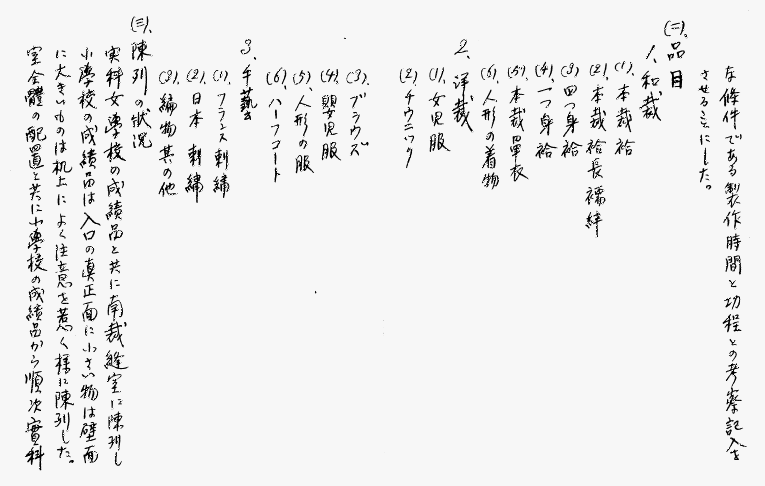 な條件である製作時間と功程との考察記入を
させることにした。
(二)、品目
1、和裁
(1)、本裁袷
(2)、本裁袷長襦袢
(3)、四つ身袷
(4)、一つ身袷
(5)、本裁單衣
(6)、人形の着物
2、洋裁
(1)、女児服
(2)、チウニック
(3)、ブラウズ
(4)、嬰児服
(5)、人形の服
(6)、ハーフコート
3、手藝
(1)、フランス刺繍
(2)、日本刺繍
(3)、編物其の他
(三)、陳列の状況
実科女學校の成績品と共に南裁縫室に陳列し
小學校の成績品は入口の真正面に小さい物は壁面
に大きいものは机上によく注意を惹く様に陳列した。
室全體の配置と共に小學校の成績品から順次實科